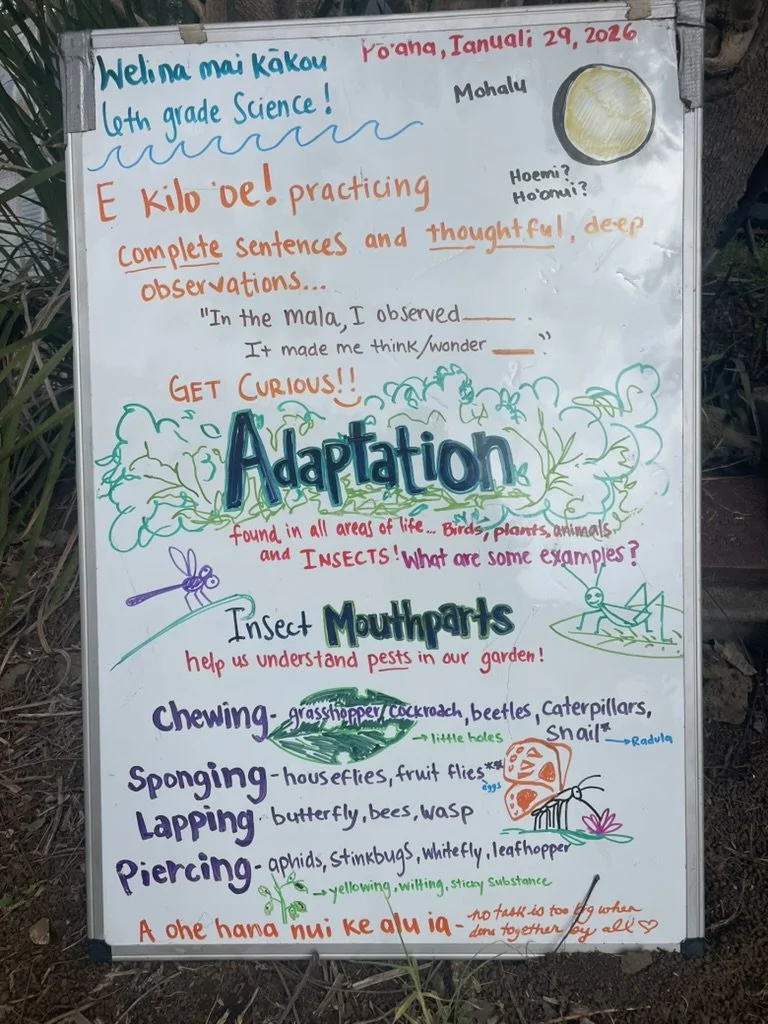 Welina mai Kākou
Po'aha, Ianuali 29, 2026
6th grade Science!
Mohalu
Hoemi?
Ho'onui?
E kilo 'oe! practicing
complete sentences and thoughtful, deep
observations...
"In the mala, I observed ___.
It made me think/wonder ___"
GET CURIOUS!!
Adaptation
found in all areas of life... Birds, plants, animals,
and INSECTS! What are some examples?
Insect Mouthparts
help us understand pests in our garden!
Chewing- grasshopper/cockroach, beetles, caterpillars,
snail* → Radula
→ little holes
Sponging - houseflies, fruit flies**
eggs
Lapping - butterfly, bees, wasp
Piercing - aphids, stinkbugs, whitefly, leafhopper
→ yellowing, wilting, sticky substance
A ohe hana nui ke alu ia - no task is too big when
done together by all! ♡